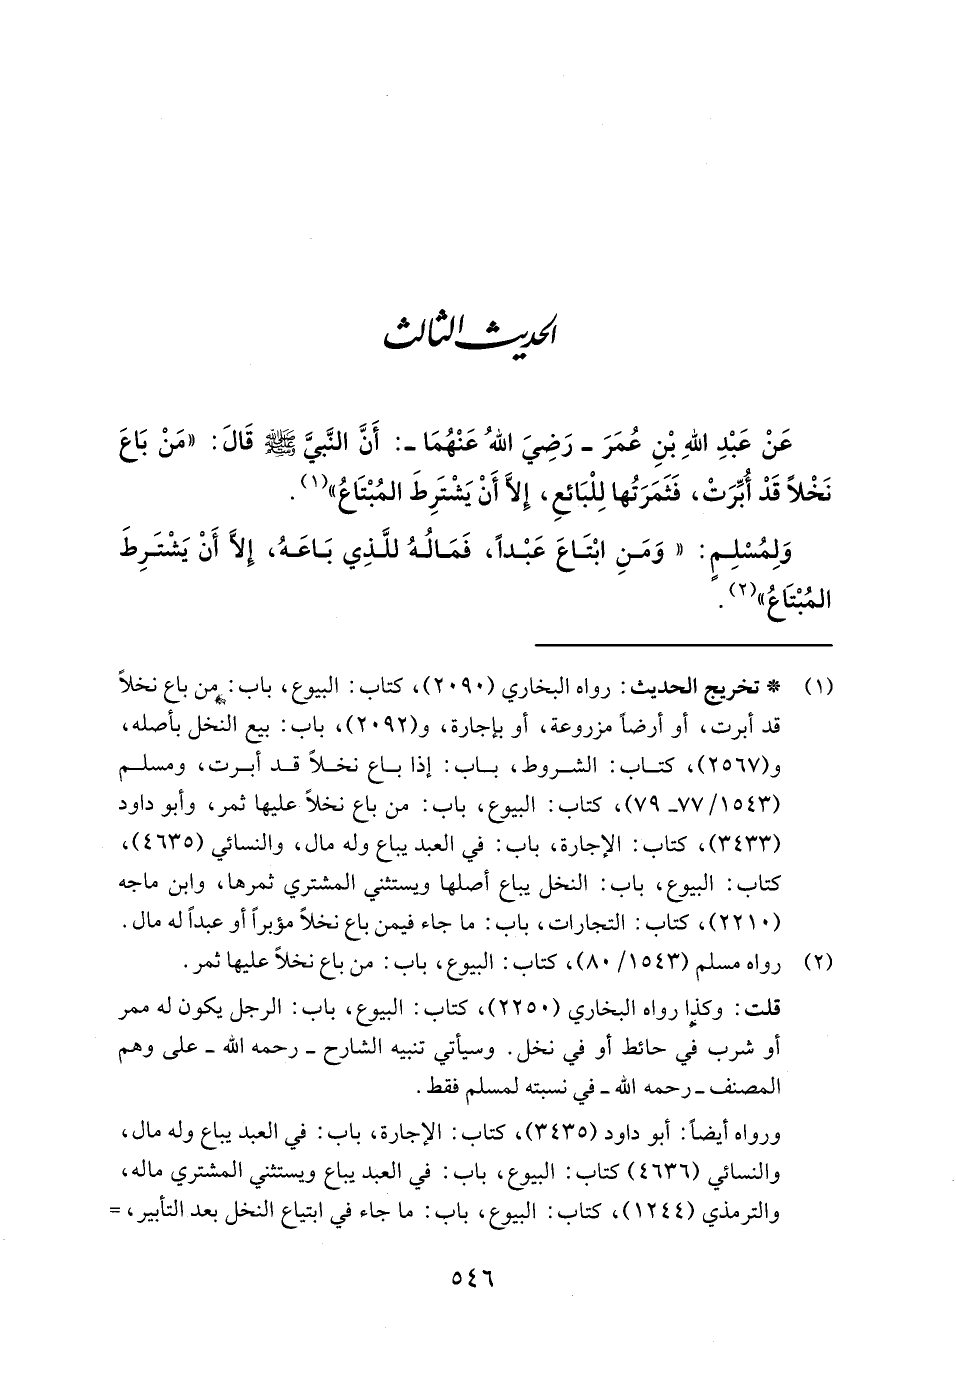 الحديث الثالث
عَنْ عَبْدِ اللهِ بْنِ عُمَرَ ـ رَضِيَ اللهُ عَنْهُمَا ـ: أَنَّ النَّبِيَّ ﷺ قَالَ: «مَنْ بَاعَ
نَخْلاً قَدْ أُبِّرَتْ، فَثَمَرَتُها لِلْبَائعِ، إِلاَّ أَنْ يَشْتَرِطَ المُبْتَاعُ»(١).
وَلِمُسْلِمٍ: « وَمَنِ ابْتَاعَ عَبْداً، فَمَالُهُ للَّذِي بَاعَهُ، إِلاَّ أَنْ يَشْتَرِطَ
المُبْتَاعُ»(٢).
(١) * تخريج الحديث: رواه البخاري (٢٠٩٠)، كتاب: البيوع، باب: من باع نخلاً
قد أبرت، أو أرضاً مزروعة، أو بإجارة، و(٢٠٩٢)، باب: بيع النخل بأصله،
و(٢٥٦٧)، كتاب: الشروط، باب: إذا باع نخلاً قد أبرت، ومسلم
(١٥٤٣/ ٧٧ـ ٧٩)، كتاب: البيوع، باب: من باع نخلاً عليها ثمر، وأبو داود
(٣٤٣٣)، كتاب: الإجارة، باب: في العبد يباع وله مال، والنسائي (٤٦٣٥)،
كتاب: البيوع، باب: النخل يباع أصلها ويستثني المشتري ثمرها، وابن ماجه
(٢٢١٠)، كتاب: التجارات، باب: ما جاء فيمن باع نخلاً مؤبراً أو عبداً له مال.
(٢) رواه مسلم (١٥٤٣/ ٨٠)، كتاب: البيوع، باب: من باع نخلاً عليها ثمر.
قلت: وكذا رواه البخاري (٢٢٥٠)، كتاب: البيوع، باب: الرجل يكون له ممر
أو شرب في حائط أو في نخل. وسيأتي تنبيه الشارح ـ رحمه الله ـ على وهم
المصنف ـ رحمه الله ـ في نسبته لمسلم فقط.
ورواه أيضاً: أبو داود (٣٤٣٥)، كتاب: الإجارة، باب: في العبد يباع وله مال،
والنسائي (٤٦٣٦) كتاب: البيوع، باب: في العبد يباع ويستثني المشتري ماله،
والترمذي (١٢٤٤)، كتاب: البيوع، باب: ما جاء في ابتياع النخل بعد التأبير، =
٥٤٦